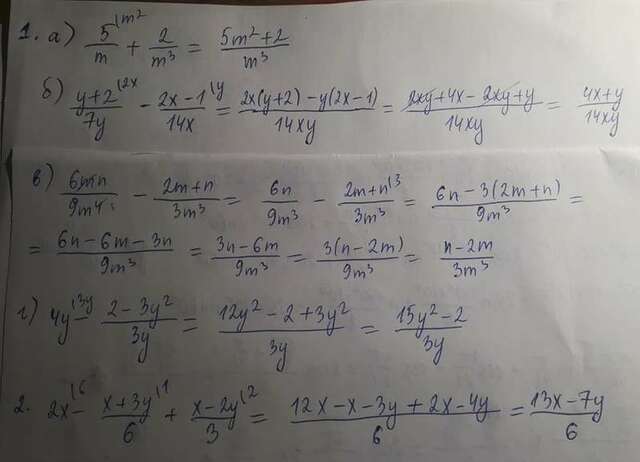 1. а) 5\m²/m + 2/m³ = (5m²+2)/m³
б) (y+2)\2x/7y − (2x−1)\y/14x = (2x(y+2)−y(2x−1))/14xy = (2xy+4x−2xy+y)/14xy = (4x+y)/14xy
в) 6mn/9m⁴ − (2m+n)/3m³ = 6n/9m³ − (2m+n)\3/3m³ = (6n−3(2m+n))/9m³ =
= (6n−6m−3n)/9m³ = (3n−6m)/9m³ = 3(n−2m)/9m³ = (n−2m)/3m³
г) 4y\3y − (2−3y²)/3y = (12y²−2+3y²)/3y = (15y²−2)/3y
2. 2x\6 − (x+3y)\1/6 + (x−2y)\2/3 = (12x−x−3y+2x−4y)/6 = (13x−7y)/6